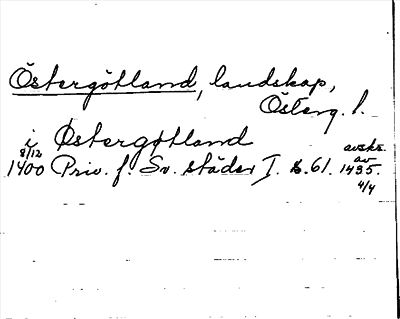 Östergötland, landskap,
Österg. l.
i Østergøtland
8/12 1400 Priv. f. Sv. städer I. s. 61. avskr. av 1435. 4/4